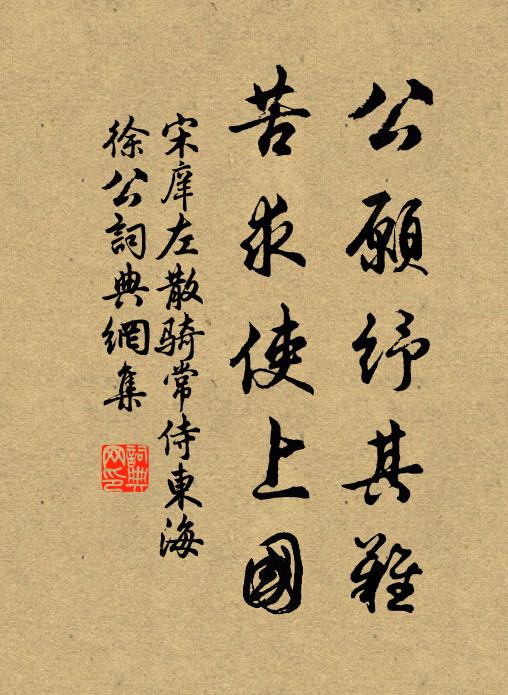 公願紓其難
苦求使上國
宋庠左散騎常侍東海
徐公詞典網集
詞典
网印